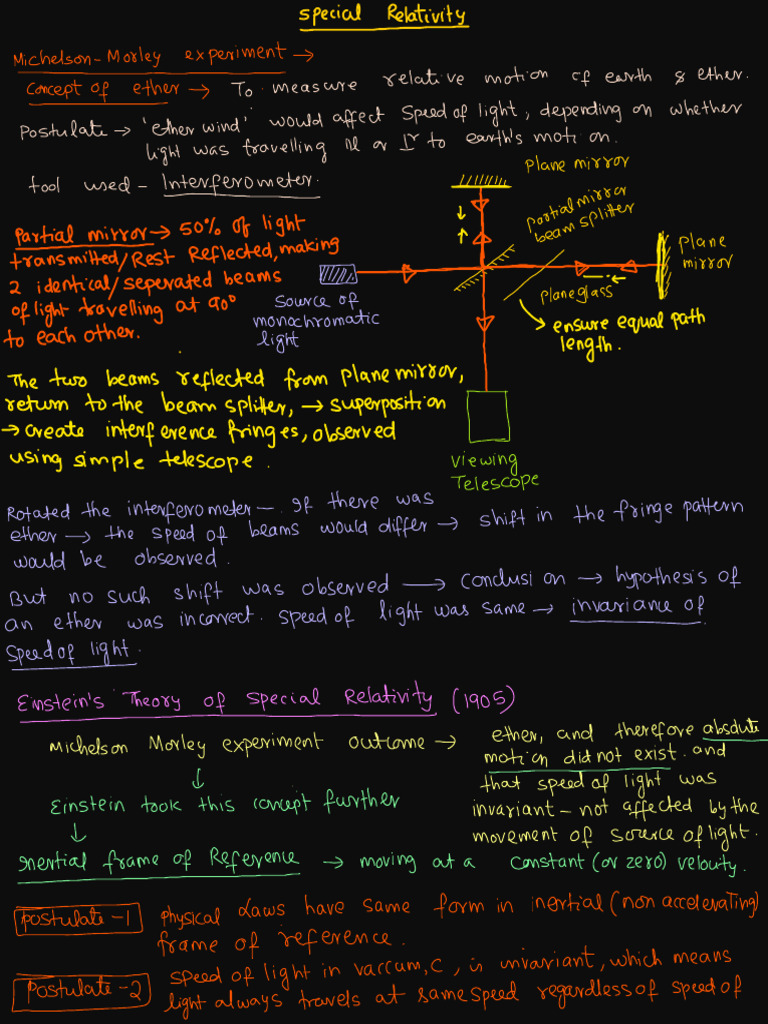 Special Relativity
Michelson-Morley experiment →
Concept of ether → To measure relative motion of earth & ether.
Postulate → 'ether wind' would affect Speed of light, depending on whether
light was travelling ll or ⊥r to earth's motion.
tool used - Interferometer.
Plane mirror
Partial mirror
beam splitter
Plane
mirror
Plane glass
ensure equal path
length.
Source of
monochromatic
light
Viewing
Telescope
Partial mirror → 50% of light
transmitted/Rest Reflected, making
2 identical/seperated beams
of light travelling at 90°
to each other.
The two beams reflected from plane mirror,
return to the beam splitter, → superposition
→ create interference fringes, observed
using simple telescope.
Rotated the interferometer - If there was
ether → the speed of beams would differ → shift in the fringe pattern
would be observed.
But no such shift was observed → conclusion → hypothesis of
an ether was incorrect. speed of light was same → invariance of
speed of light.
Einstein's Theory of special Relativity (1905)
Michelson Morley experiment outcome → ether, and therefore absolute
motion did not exist. and
that speed of light was
invariant - not affected by the
movement of source of light.
↓
Einstein took this concept further
↓
Inertial frame of Reference → moving at a constant (or zero) velocity.
Postulate-1 Physical Laws have same form in inertial (non accelerating)
frame of reference.
Postulate-2 speed of light in vaccum, c, is invariant, which means
light always travels at same speed regardless of speed of